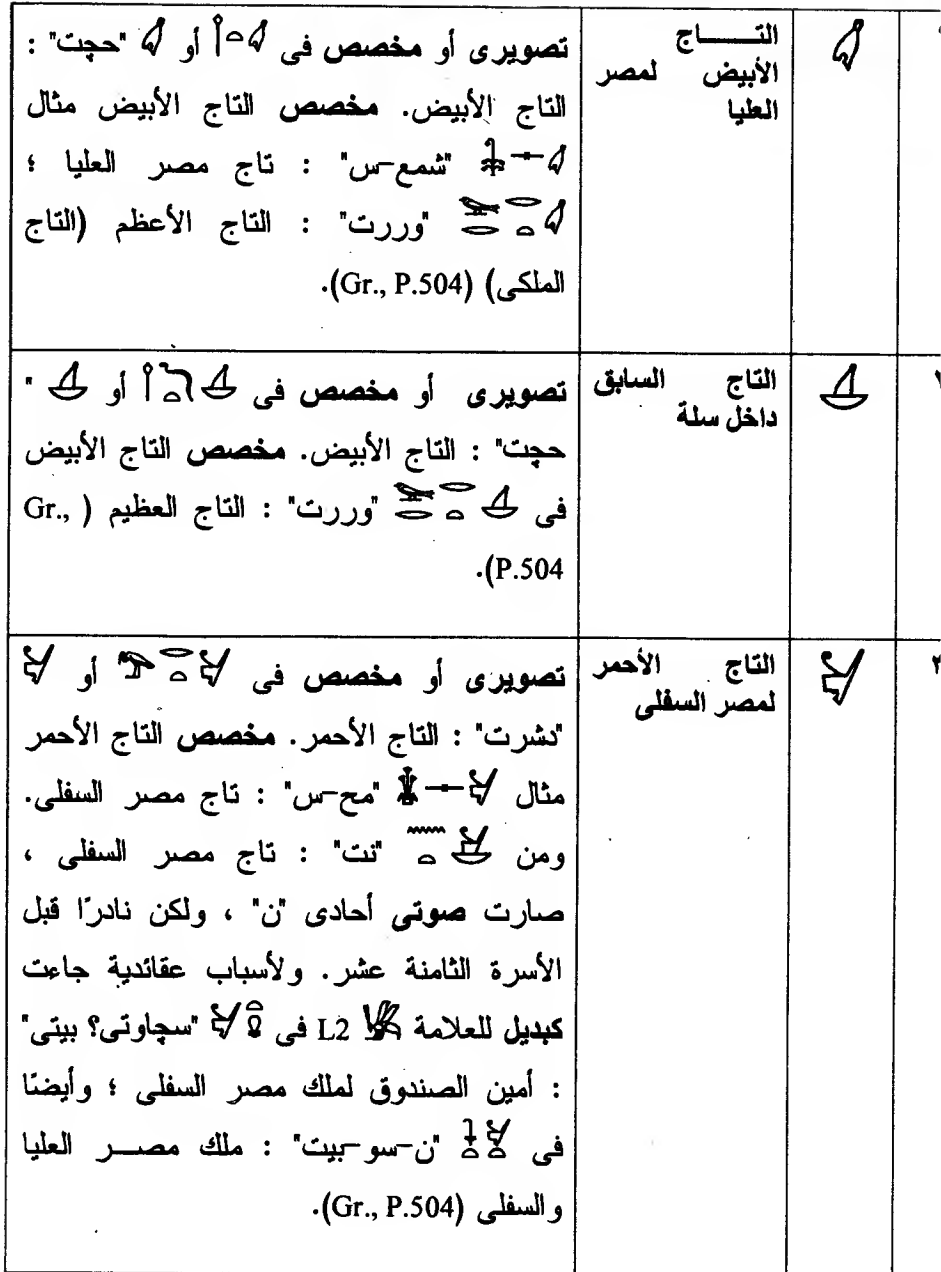 التـــــاج
الأبيض لمصر
العليا
تصويرى أو مخصص فى 𓌉𓏏𓋑 أو 𓋑 "حچت" :
التاج الأبيض. مخصص التاج الأبيض مثال
𓋑 "شمع-س" : تاج مصر العليا ؛
𓅨𓂋𓂋𓏏𓋑 "وررت" : التاج الأعظم (التاج
الملكى) (Gr., P.504).
التاج السابق
داخل سلة
تصويرى أو مخصص فى 𓌉𓆓𓏏𓋒 أو 𓋒 "
حچت" : التاج الأبيض. مخصص التاج الأبيض
فى 𓅨𓂋𓂋𓏏𓋒 "وررت" : التاج العظيم (Gr.,
P.504).
التاج الأحمر
لمصر السفلى
تصويرى أو مخصص فى 𓅟𓂋𓏏𓋔 أو 𓋔
"دشرت" : التاج الأحمر. مخصص التاج الأحمر
مثال 𓋔 "مح-س" : تاج مصر السفلى.
ومن 𓈖𓏏𓋕 "نت" : تاج مصر السفلى ،
صارت صوتى أحادى "ن" ، ولكن نادرًا قبل
الأسرة الثامنة عشر. ولأسباب عقائدية جاءت
كبديل للعلامة 𓆤 L2 فى 𓋔 "سچاوتى؟ بيتى"
: أمين الصندوق لملك مصر السفلى ؛ وأيضًا
فى 𓇓𓏏𓋔𓏏 "ن-سو-بيت" : ملك مصـــر العليا
والسفلى (Gr., P.504).